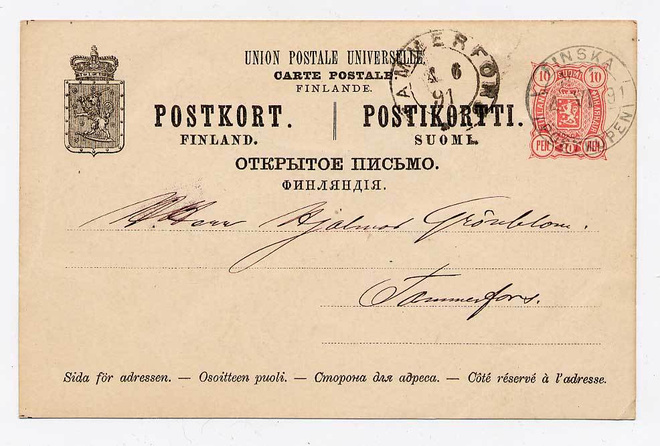 UNION POSTALE UNIVERSELLE.
CARTE POSTALE
FINLANDE.
POSTKORT. POSTIKORTTI.
FINLAND. SUOMI.
ОТКРЫТОЕ ПИСЬМО.
ФИНЛЯНДІЯ.
TAMMERFORS
6
91
FINSKA
91
10 10
PEN PEN
Herr Hjalmar Grönblom.
Tammerfors.
Sida för adressen. — Osoitteen puoli. — Сторона для адреса. — Côté réservé à l'adresse.